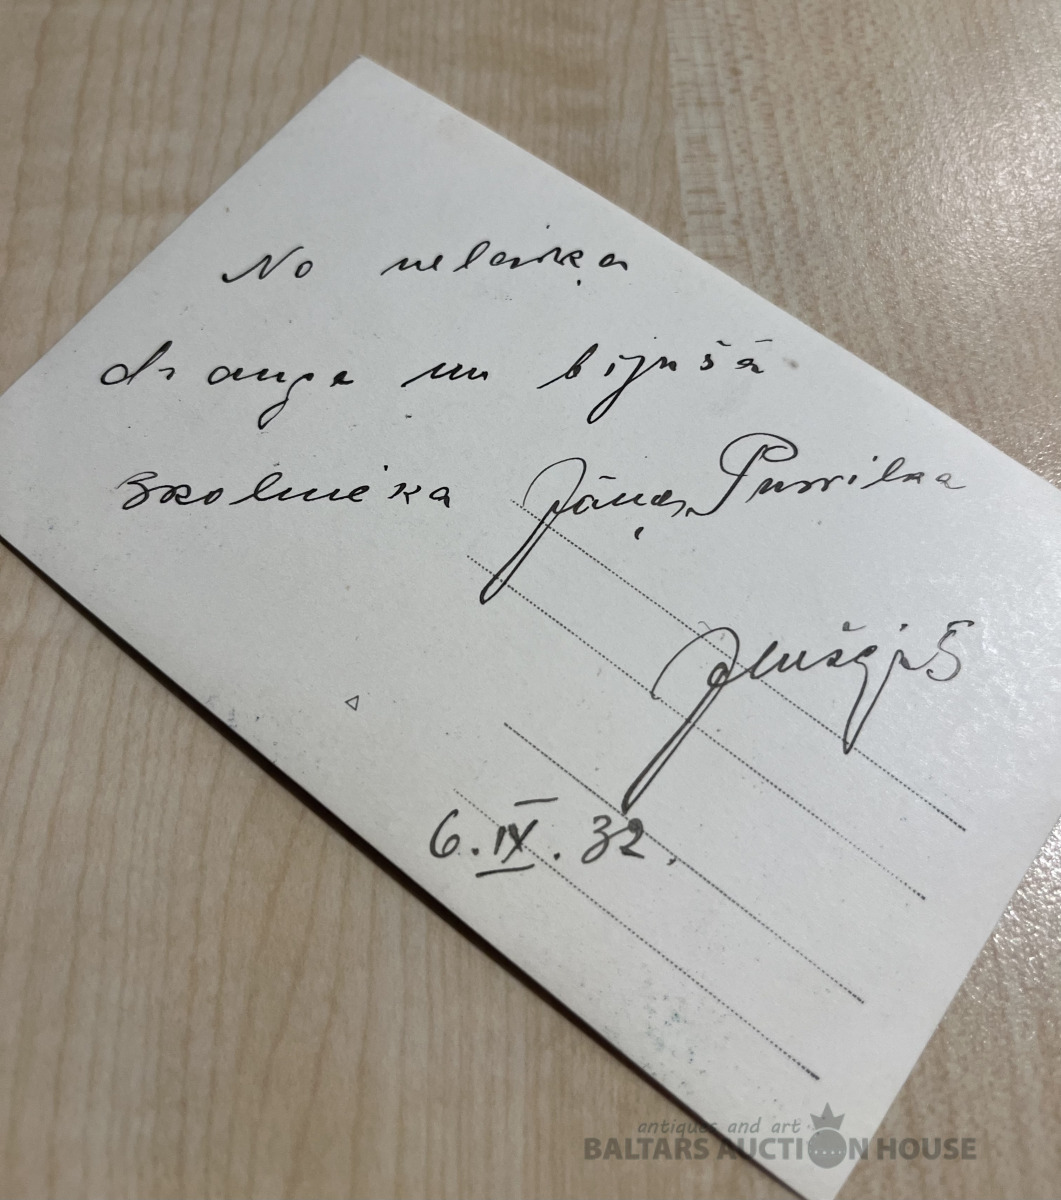 No nelaiķa
drauga un bijušā
skolnieka Jāņa Purviķa
6.IX.32.
antiques and art
BALTARS AUCTION HOUSE